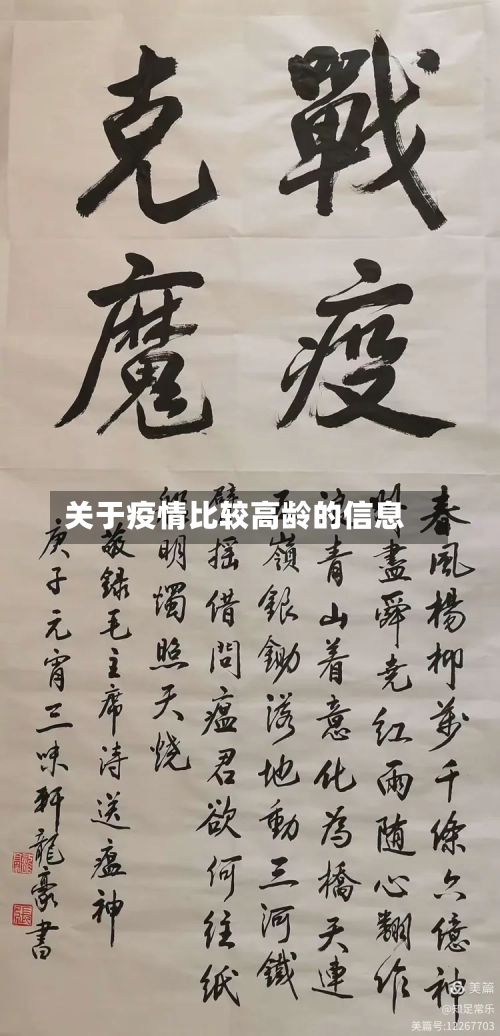 戰疫
克魔
关于疫情比较高龄的信息
春風楊柳萬千條六億神
州盡舜尧紅雨随心翻作
浪青山着意化為橋天連
五嶺銀鋤落地動三河鐵
臂摇借問瘟君欲何往紙
船明燭照天燒
敬録毛主席詩送瘟神
庚子元宵三味軒龍豪書
美篇
@知足常乐
美篇号:12267703